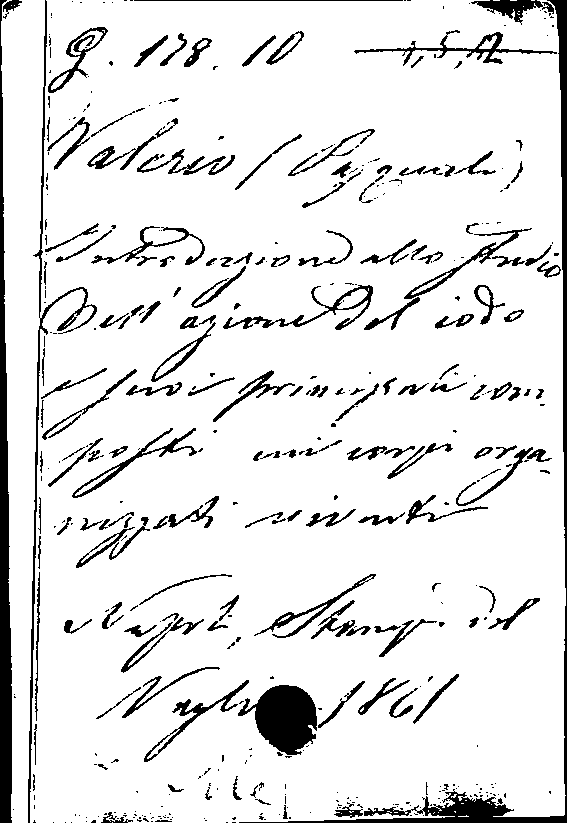 Q. 178. 10 1,5,12
Valerio (Pasquale)
Introduzione allo studio
dell' azione del iodo
e suoi principali com-
posti nei corpi orga-
nizzati viventi
Napoli, Stamp. del
Vaglio 1861